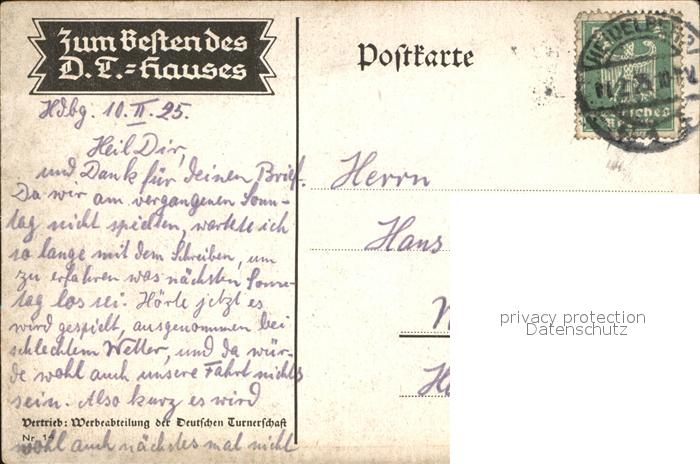 Zum Besten des
D. T.=Hauses
Postkarte
HEIDELBERG
Hdbg. 10. II. 25.
Heil Dir,
und Dank für deinen Brief.
Da wir am vergangenen Sonn-
tag nicht spielten, wartete ich
so lange mit dem Schreiben, um
zu erfahren was nächsten Sonn-
tag los sei. Hörte jetzt es
wird gespielt, ausgenommen bei
schlechtem Wetter, und da wür-
de wohl auch unsere Fahrt nichts
sein. Also kurz es wird
Vertrieb: Werbeabteilung der Deutschen Turnerschaft
Nr. 14
wohl auch nächstes mal nicht
Herrn
Hans
privacy protection
Datenschutz